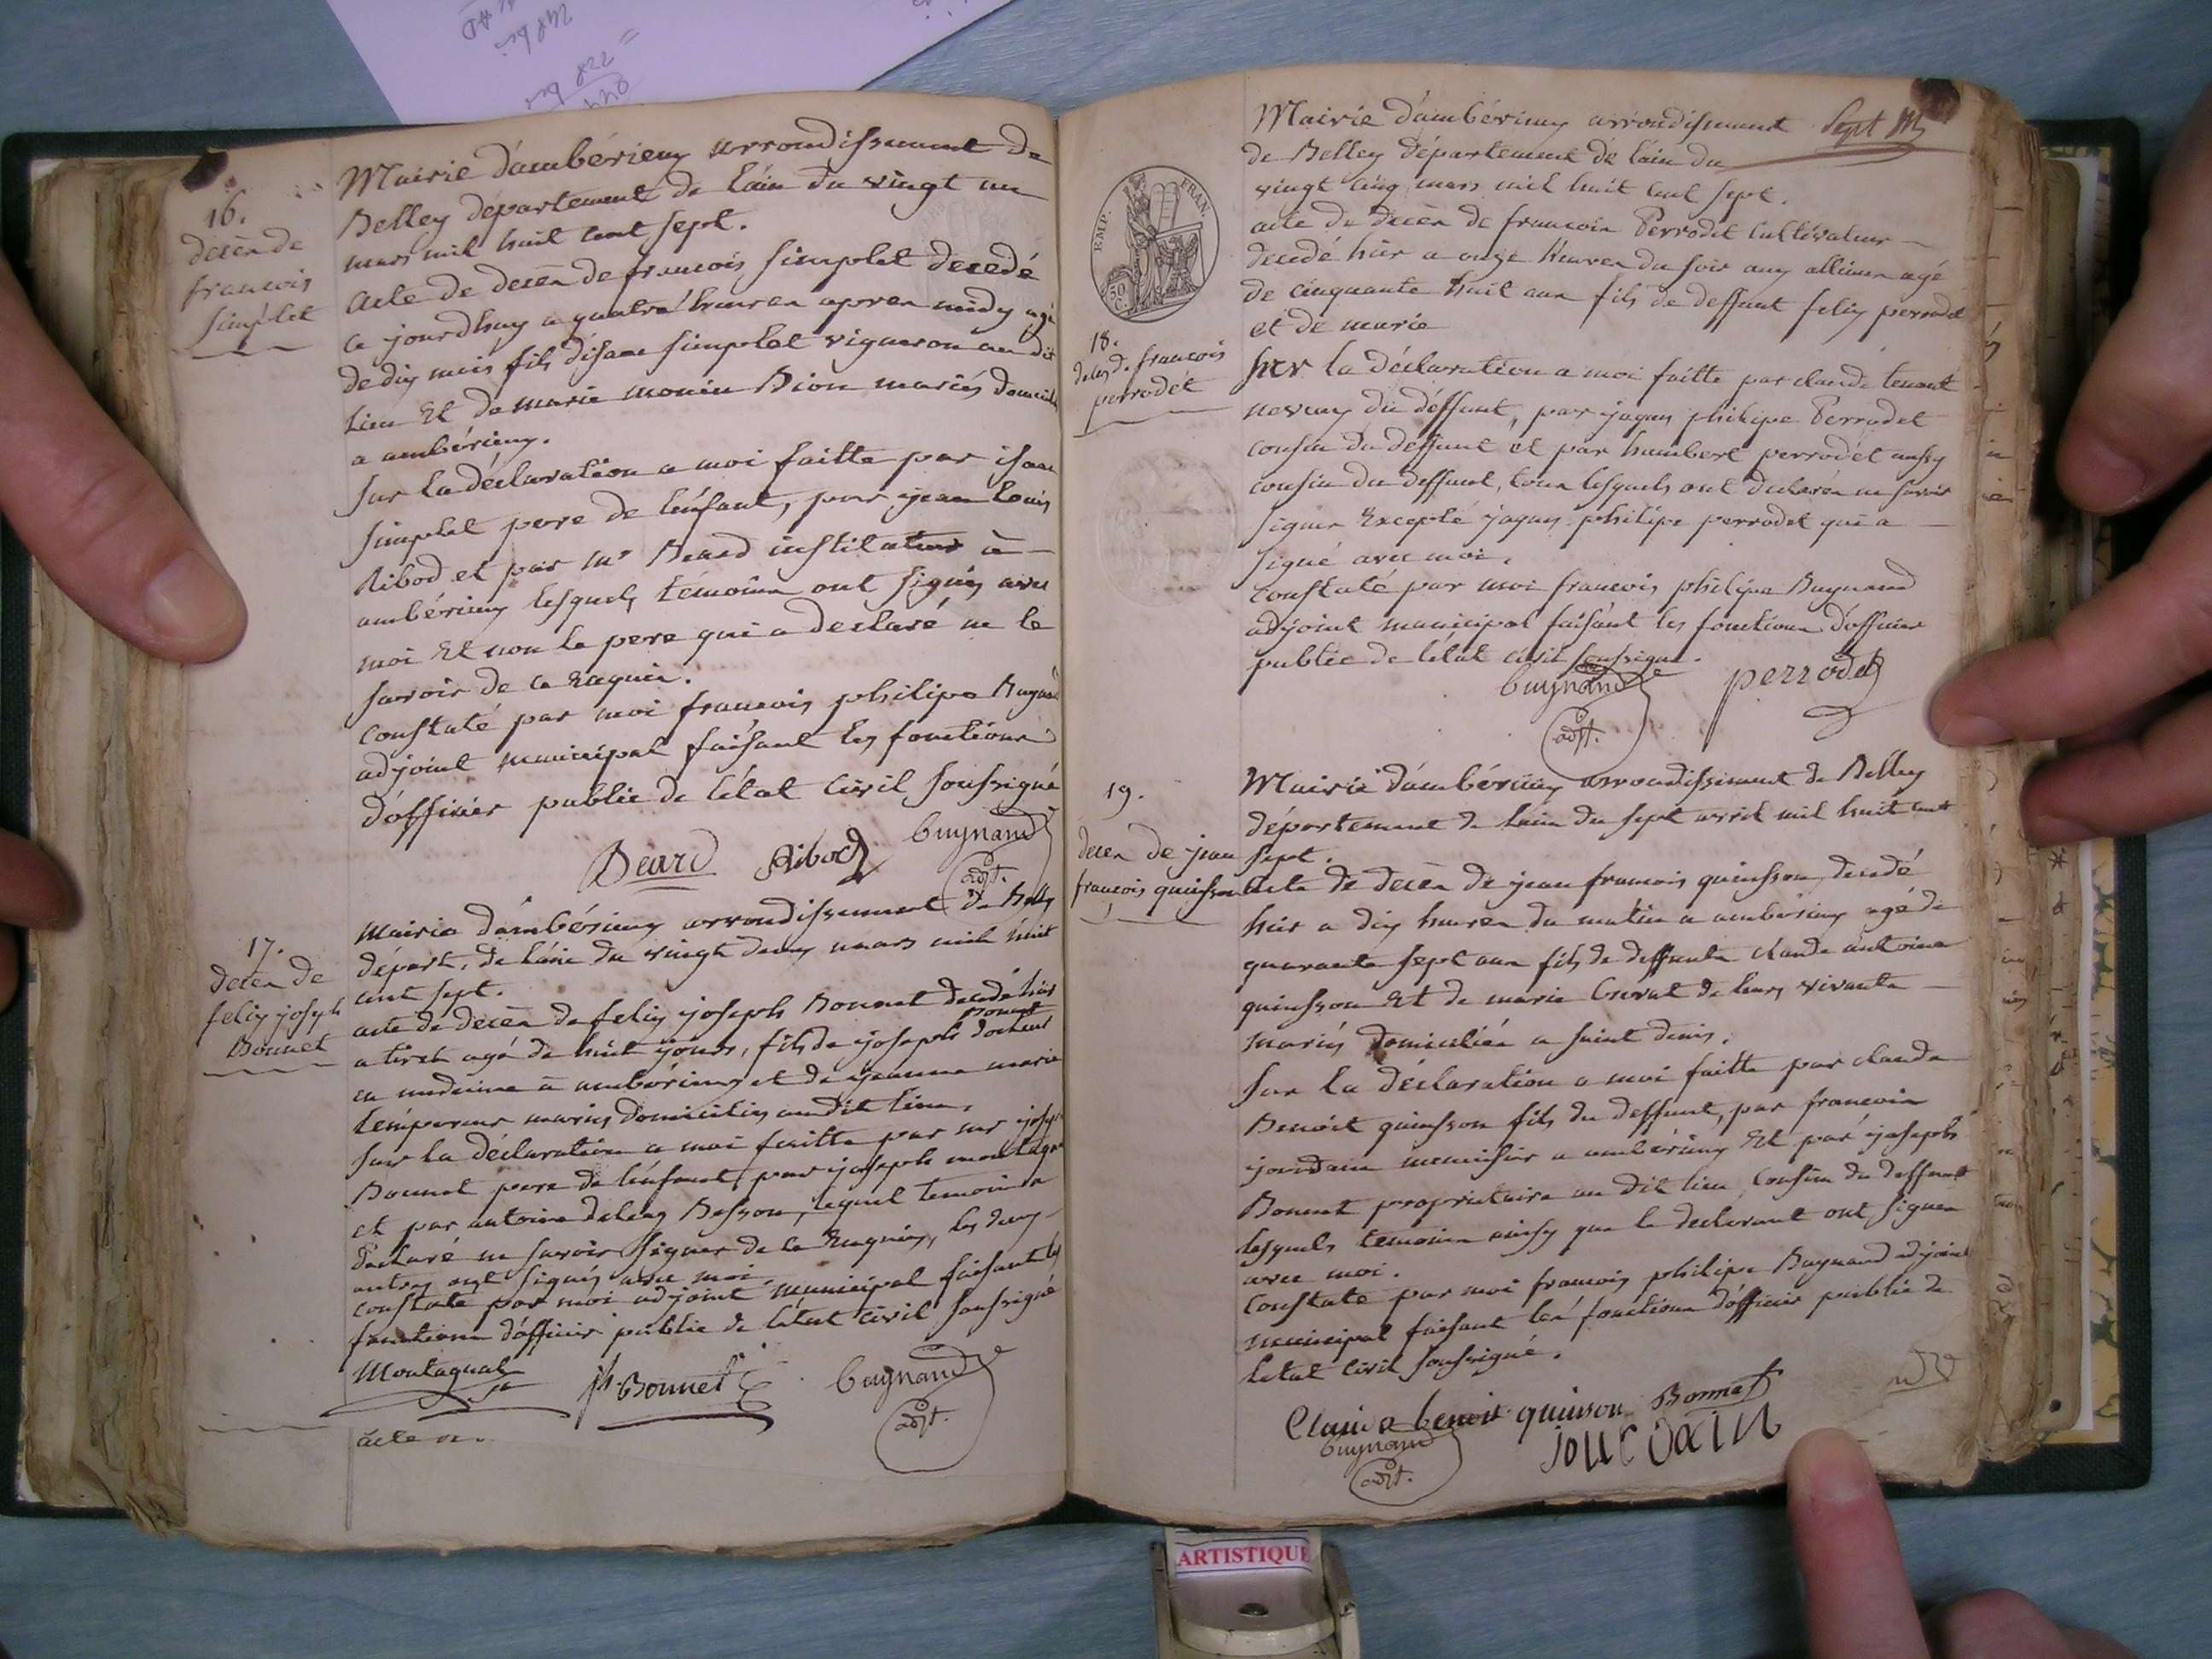 16.
decès de
francois
simplet
Mairie d'ambérieux arrondissement de
Belley département de l'ain du vingt un
mars mil huit cent sept.
acte de decès de francois simplet decedé
ce jourdhuy a quatre heures apres midy agé
de dix mois fils disaac simplet vigneron au dit
lieu Et de marie monin Dion mariés domiciliés
a ambérieux.
sur la déclaration a moi faitte par isaac
simplet pere de lénfant, par jean Louis
Ribod et par mr Beard instituteur à
ambérieux lesquels témoins ont signés avec
moi Et non le pere qui a declaré ne le
savoir de ce Enquis.
Constaté par moi francois philipe Buynand
adjoint municipal faisant les fonctions
d'officier public de létat Civil soussigné
Beard Ribod Buynand
adjt.
17.
decès de
felix joseph
Bonnet
mairie d'ambérieux arrondissement de Belley
départ. de láin du vingt deux mars mil huit
cent sept.
acte de decès de felix joseph Bonnet decedé hier
a tiret agé de huit jours, fils de joseph Bonnet docteur
en medecine à ambérieux et de jeanne marie
Lémpereur mariés domiciliés audit lieu,
sur la déclaration a moi faitte par mr joseph
Bonnet pere de lénfant, par joseph montagnat
et par antoine Besson, lequel temoin a
declaré ne savoir signer de ce Enquis, les deux
autres ont signés avec moi
constaté par moi adjoint municipal faisant les
fonctions d'officier public de létat civil soussigné
Montagnat jh. Bonnet Buynand
adjt.
acte n.
Sept
Mairie d'ambérieux arrondissement
de Belley département de lain du
vingt cinq mars mil huit cent sept.
EMP. FRAN.
50
C.
18.
decès de francois
perrodet
acte de decès de francois Perrodet Cultivateur
decedé hier a onze heures du soir aux allimes agé
de cinquante huit ans fils de deffunt felix perrodet
et de marie
sur la déclaration a moi faitte par claude tenant
neveux du déffunt, par jaques philipe Perrodet
cousin du deffunt et par humbert perrodet aussy
cousin du deffunt, tous lesquels ont declarés ne savoir
signer Excepté jaques philipe perrodet qui a
signé avec moi.
Constaté par moi francois philipe Buynand
adjoint municipal faisant les fonctions d'officier
public de létat civil soussigné.
Buynand perrodet
adjt.
19.
decès de jean
françois quinsson
Mairie d'ambérieux arrondissement de Belley
département de lain du sept avril mil huit cent
sept.
acte de decès de jean francois quinsson, decedé
hier a dix heures du matin a ambérieux agé de
quarante sept ans fils de deffunts claude antoine
quinsson Et de marie Cuvat de leurs vivants
mariés domiciliés a saint denis.
sur la déclaration a moi faitte par claude
Benoit quinsson fils du deffunt, par francois
jourdain menuisier a ambérieux Et par joseph
Bonnet propriétaire au dit lieu, Cousin du deffunt
lesquels temoins ainsy que le declarant ont signés
avec moi.
Constaté par moi francois philipe Buynand adjoint
municipal faisant les fonctions d'officier public de
letat civil soussigné.
Claude benoit quinson Bonnet
Buynand jourdain
adjt.
ARTISTIQUE